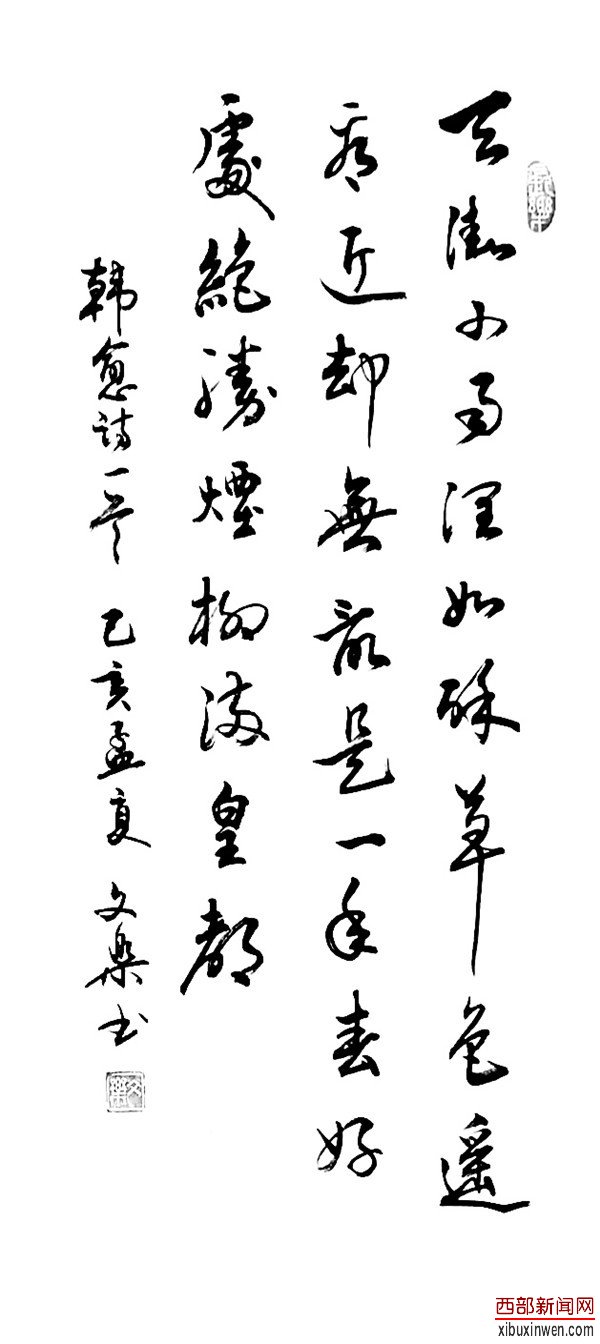 天街小雨潤如酥草色遥
看近却無最是一年春好
處絶勝煙柳滿皇都
韓愈詩一首 己亥孟夏 文樂書
西部新闻网
xibuxinwen.com